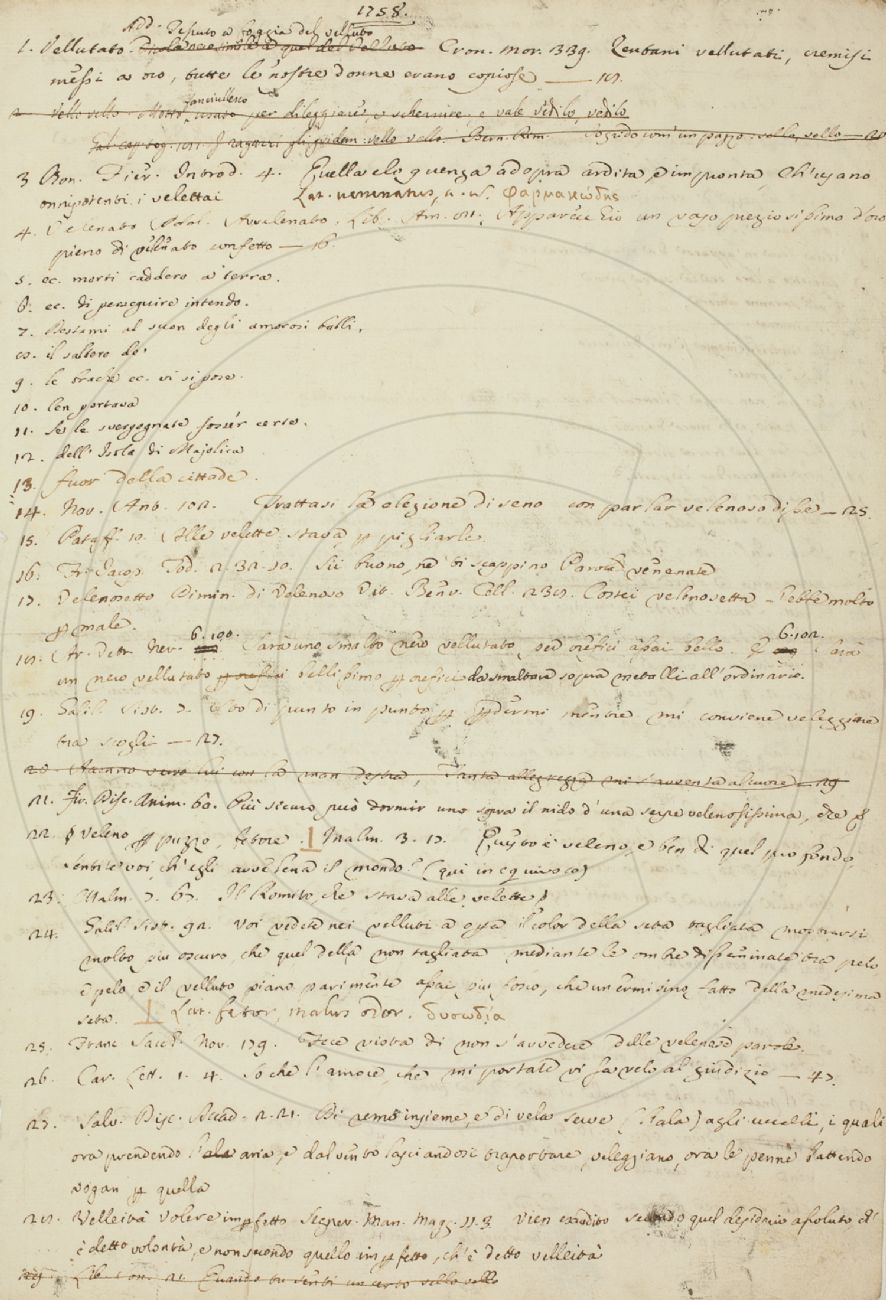 1758.
Add. Tessuto a foggia del velluto
1. Vellutato. Cron. Mor. 339. Zentani vellutati, cremisi
messi a oro, tutte le nostre donne erano copiose — 18.
fanciullesco
2. Vello vello. Motto usato per dileggiare, o schernire, e vale vedilo, vedilo
Bern. Rim. vello, vello — 28
3 Bon. Fier. Introd. 4. Quella eloquenza adopra ardita, e impronta, Ch'usano
onnipotenti i velettai Lat. venenatus, a. u. φαρμακώδης
4. Velenato Add. Avvelenato. Lib. Am. Apparecchiò un vaso preziosissimo d'oro
pieno di velenato confetto — 16
5. ec. morti caddero a terra.
6. ec. di perseguire intendo.
7. Destami al suon degli amorosi balli.
8. il saltero de'
9. le brache ec. vi si pose.
10. len portava
11. Se le svergognate fosser certe.
12. dell' Isola di Majolica
13. fuor della cittade.
14. Nov. Ant. 102. Trattasi la elezione di seno con parlar velenoso di be — 25.
15. Pataff. 10. Alle velette stava per pigliarle.
16. Fr. Jacop. Tod. 2. 32. 10. Sii buono, nè ti scappino Parole venenate
17. Velenosetto Dimin. di Velenoso Vit. Benv. Cell. 238. Costei velenosetta ebbe molto
per male.
18. Art. Vetr. Ner. 6. 190. Sarà uno smalto nero vellutato, per orefici assai bello. E 6. 102. Sarà
un nero vellutato bellissimo per orefici da smaltare sopra metalli all'ordinario.
19. Galil. Sist. 7. di punto in punto per perdermi mentre mi conviene veleggiare
tra scogli — 27.
20. lui con la man destra, Tanta allegrezza mi s'avventa al cuore — 29
21. Fir. Disc. Anim. 60. Più sicuro può dormir uno sopra il nido d'una serpe velenosissima, che
22. § Veleno per puzzo, fetore. Malm. 3. 17. Questo è veleno, e ben di quel profondo,
Sentite voi ch'egli avvelena il mondo? (qui in equivoco)
23. Malm. 7. 67. Il Romito, che stava alle velette
24. Galil. Sist. 92. Voi vedete nei velluti a opra il color della seta tagliata mostrarsi
molto più oscuro che quel della non tagliata mediante le ombre disseminate tra pelo
e pelo e il velluto piano parimente assai più fosco, che un ermisino fatto della medesima
seta. Lat. fetor, malus odor. δυσωδία
25. Franc. Sacch. Nov. 179. Fece vista di non s'avvedere delle velenose parole.
26. Car. Lett. 1. 4. So che l'amore, che mi portate vi fa velo al giudizio — 47.
27. Salv. Disc. Accad. 2. 21. Di remo insieme, e di vela serve (l'ala) agli uccelli, i quali
ora prendendo aria, e dal vento lasciandosi trasportare, veleggiano, ora le penne battendo
vogan per quella
28. Velleità Volere imperfetto Segner. Man. Magg. 11. 3 Vien esaudito secondo quel desiderio assoluto ch'
è detto volontà, e non secondo quello imperfetto, ch'è detto velleità
29. Lib. Son. 21. Quando tu senti un certo vello vello